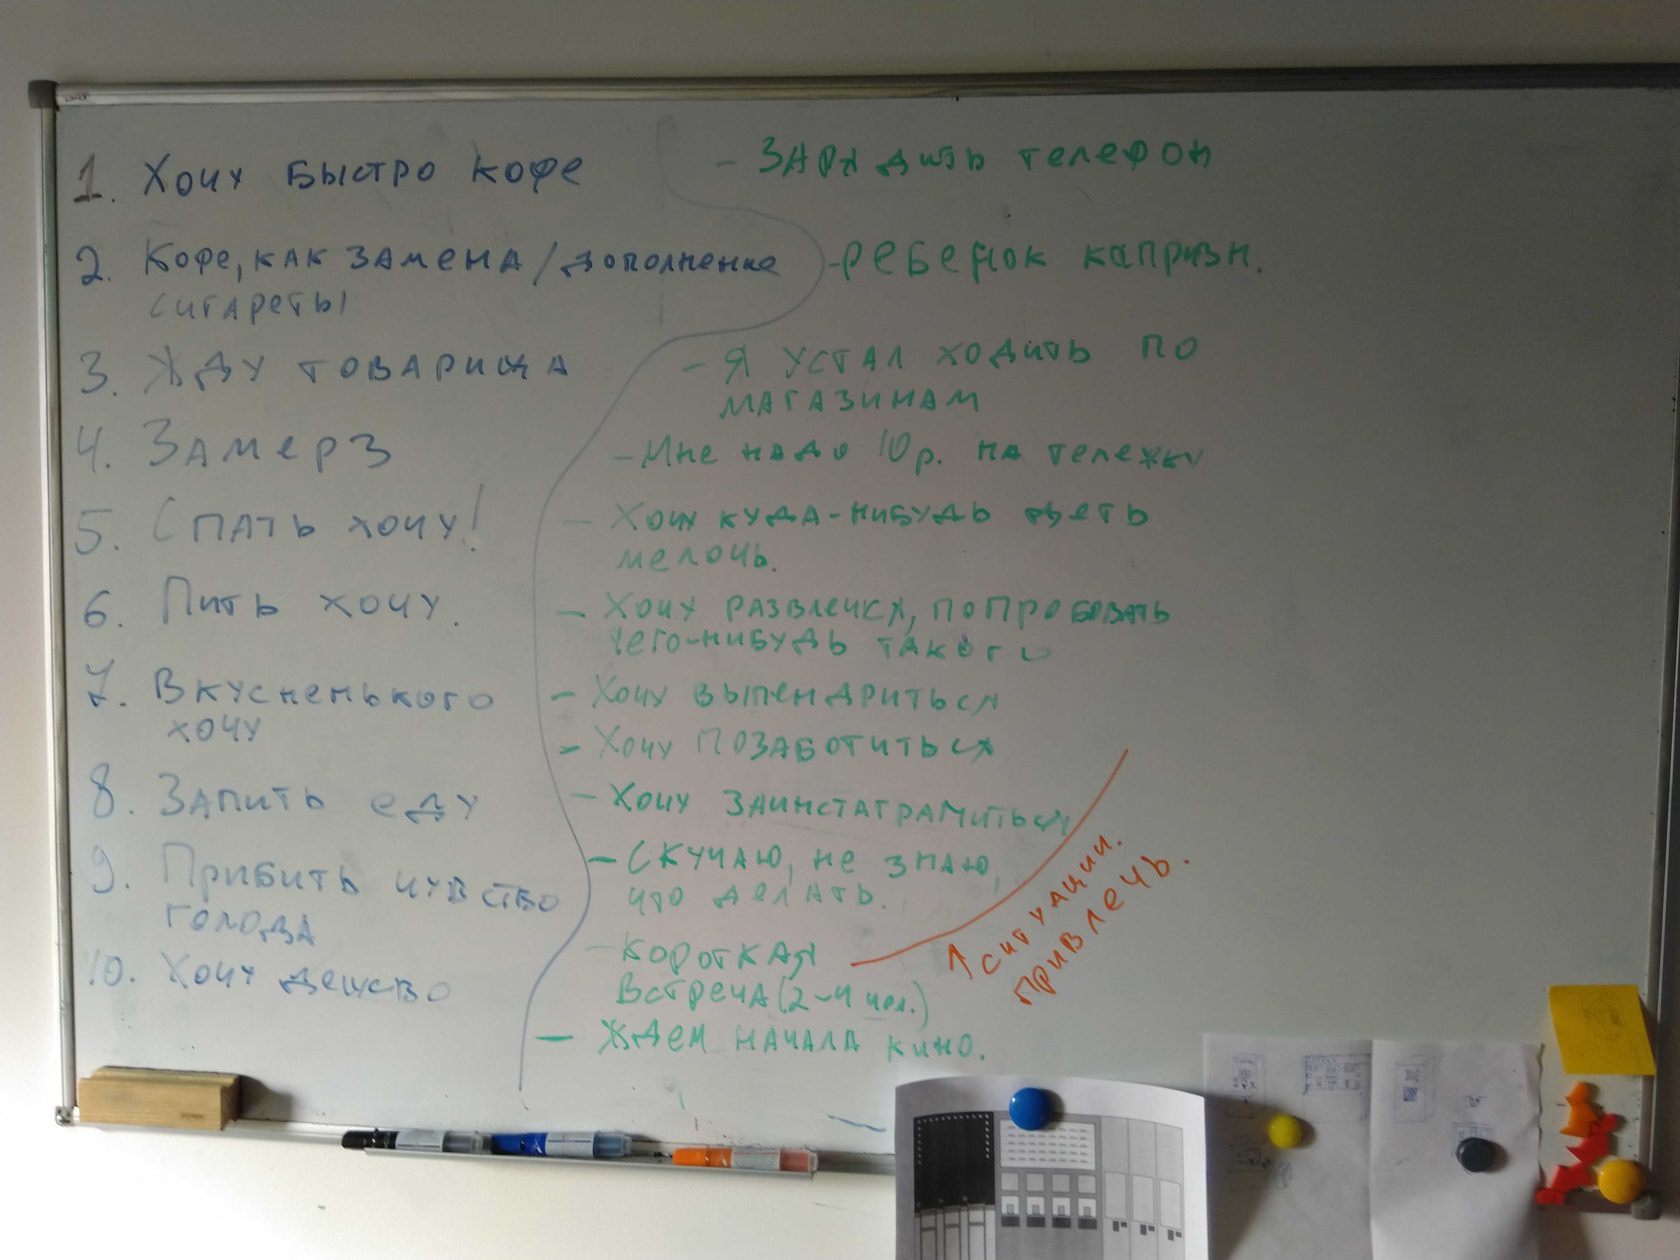 1. Хочу быстро кофе
2. Кофе, как замена/дополнение
сигареты
3. Жду товарища
4. Замерз
5. Спать хочу!
6. Пить хочу.
7. Вкусненького
хочу
8. Запить еду
9. Прибить чувство
голода
10. Хочу
- Зарядить телефон
- Ребенок капризн.
- Я устал ходить по
магазинам
- Мне надо 10р. на тележку
- Хочу куда-нибудь деть
мелочь.
- Хочу развлечься, попробовать
чего-нибудь такого
- Хочу выпендриться
- Хочу позаботиться
- Хочу заинстаграмиться
- Скучаю, не знаю,
что делать.
- Короткая
встреча (2-4 чел.)
- Ждем начала кино.
↑ ситуации.
привлечь.